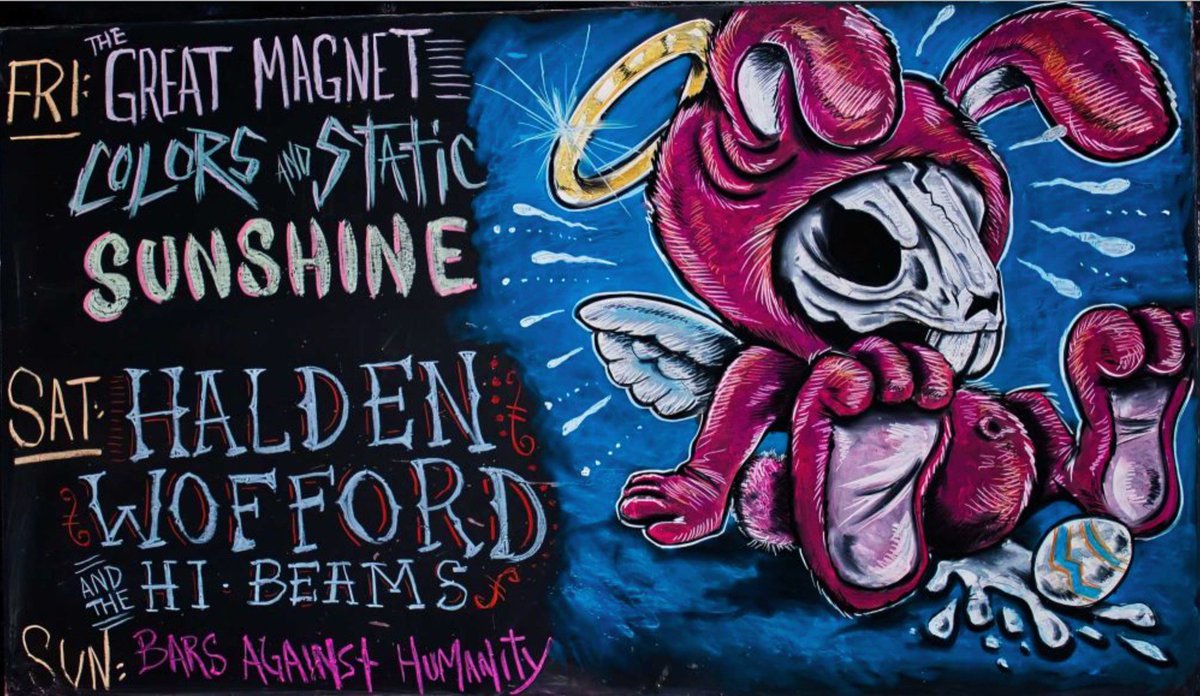 FRI: THE GREAT MAGNET
COLORS AND STATIC
SUNSHINE
SAT: HALDEN
WOFFORD
AND THE HI·BEAMS
SUN: BARS AGAINST HUMANITY